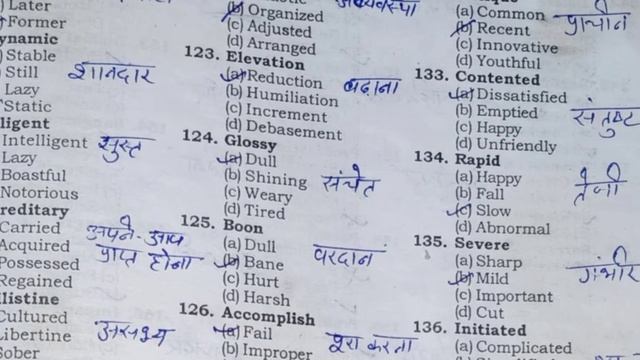 Later
Former
ynamic
Stable
Still शानदार
Lazy
Static
ligent
Intelligent सुस्त
Lazy
Boastful
Notorious
reditary
Carried अपने-आप
Acquired प्राप्त होना
Possessed
Regained
llistine
Cultured
Libertine असभ्य
Sober
(b) Organized
(c) Adjusted
(d) Arranged
123. Elevation
(a) Reduction बढ़ाना
(b) Humiliation
(c) Increment
(d) Debasement
124. Glossy
(a) Dull
(b) Shining संचेत
(c) Weary
(d) Tired
125. Boon
(a) Dull वरदान
(b) Bane
(c) Hurt
(d) Harsh
126. Accomplish
(a) Fail पूरा करना
(b) Improper
(a) Common प्राचीन
(b) Recent
(c) Innovative
(d) Youthful
133. Contented
(a) Dissatisfied
(b) Emptied संतुष्ट
(c) Happy
(d) Unfriendly
134. Rapid
(a) Happy तेजी
(b) Fall
(c) Slow
(d) Abnormal
135. Severe
(a) Sharp गंभीर
(b) Mild
(c) Important
(d) Cut
136. Initiated
(a) Complicated